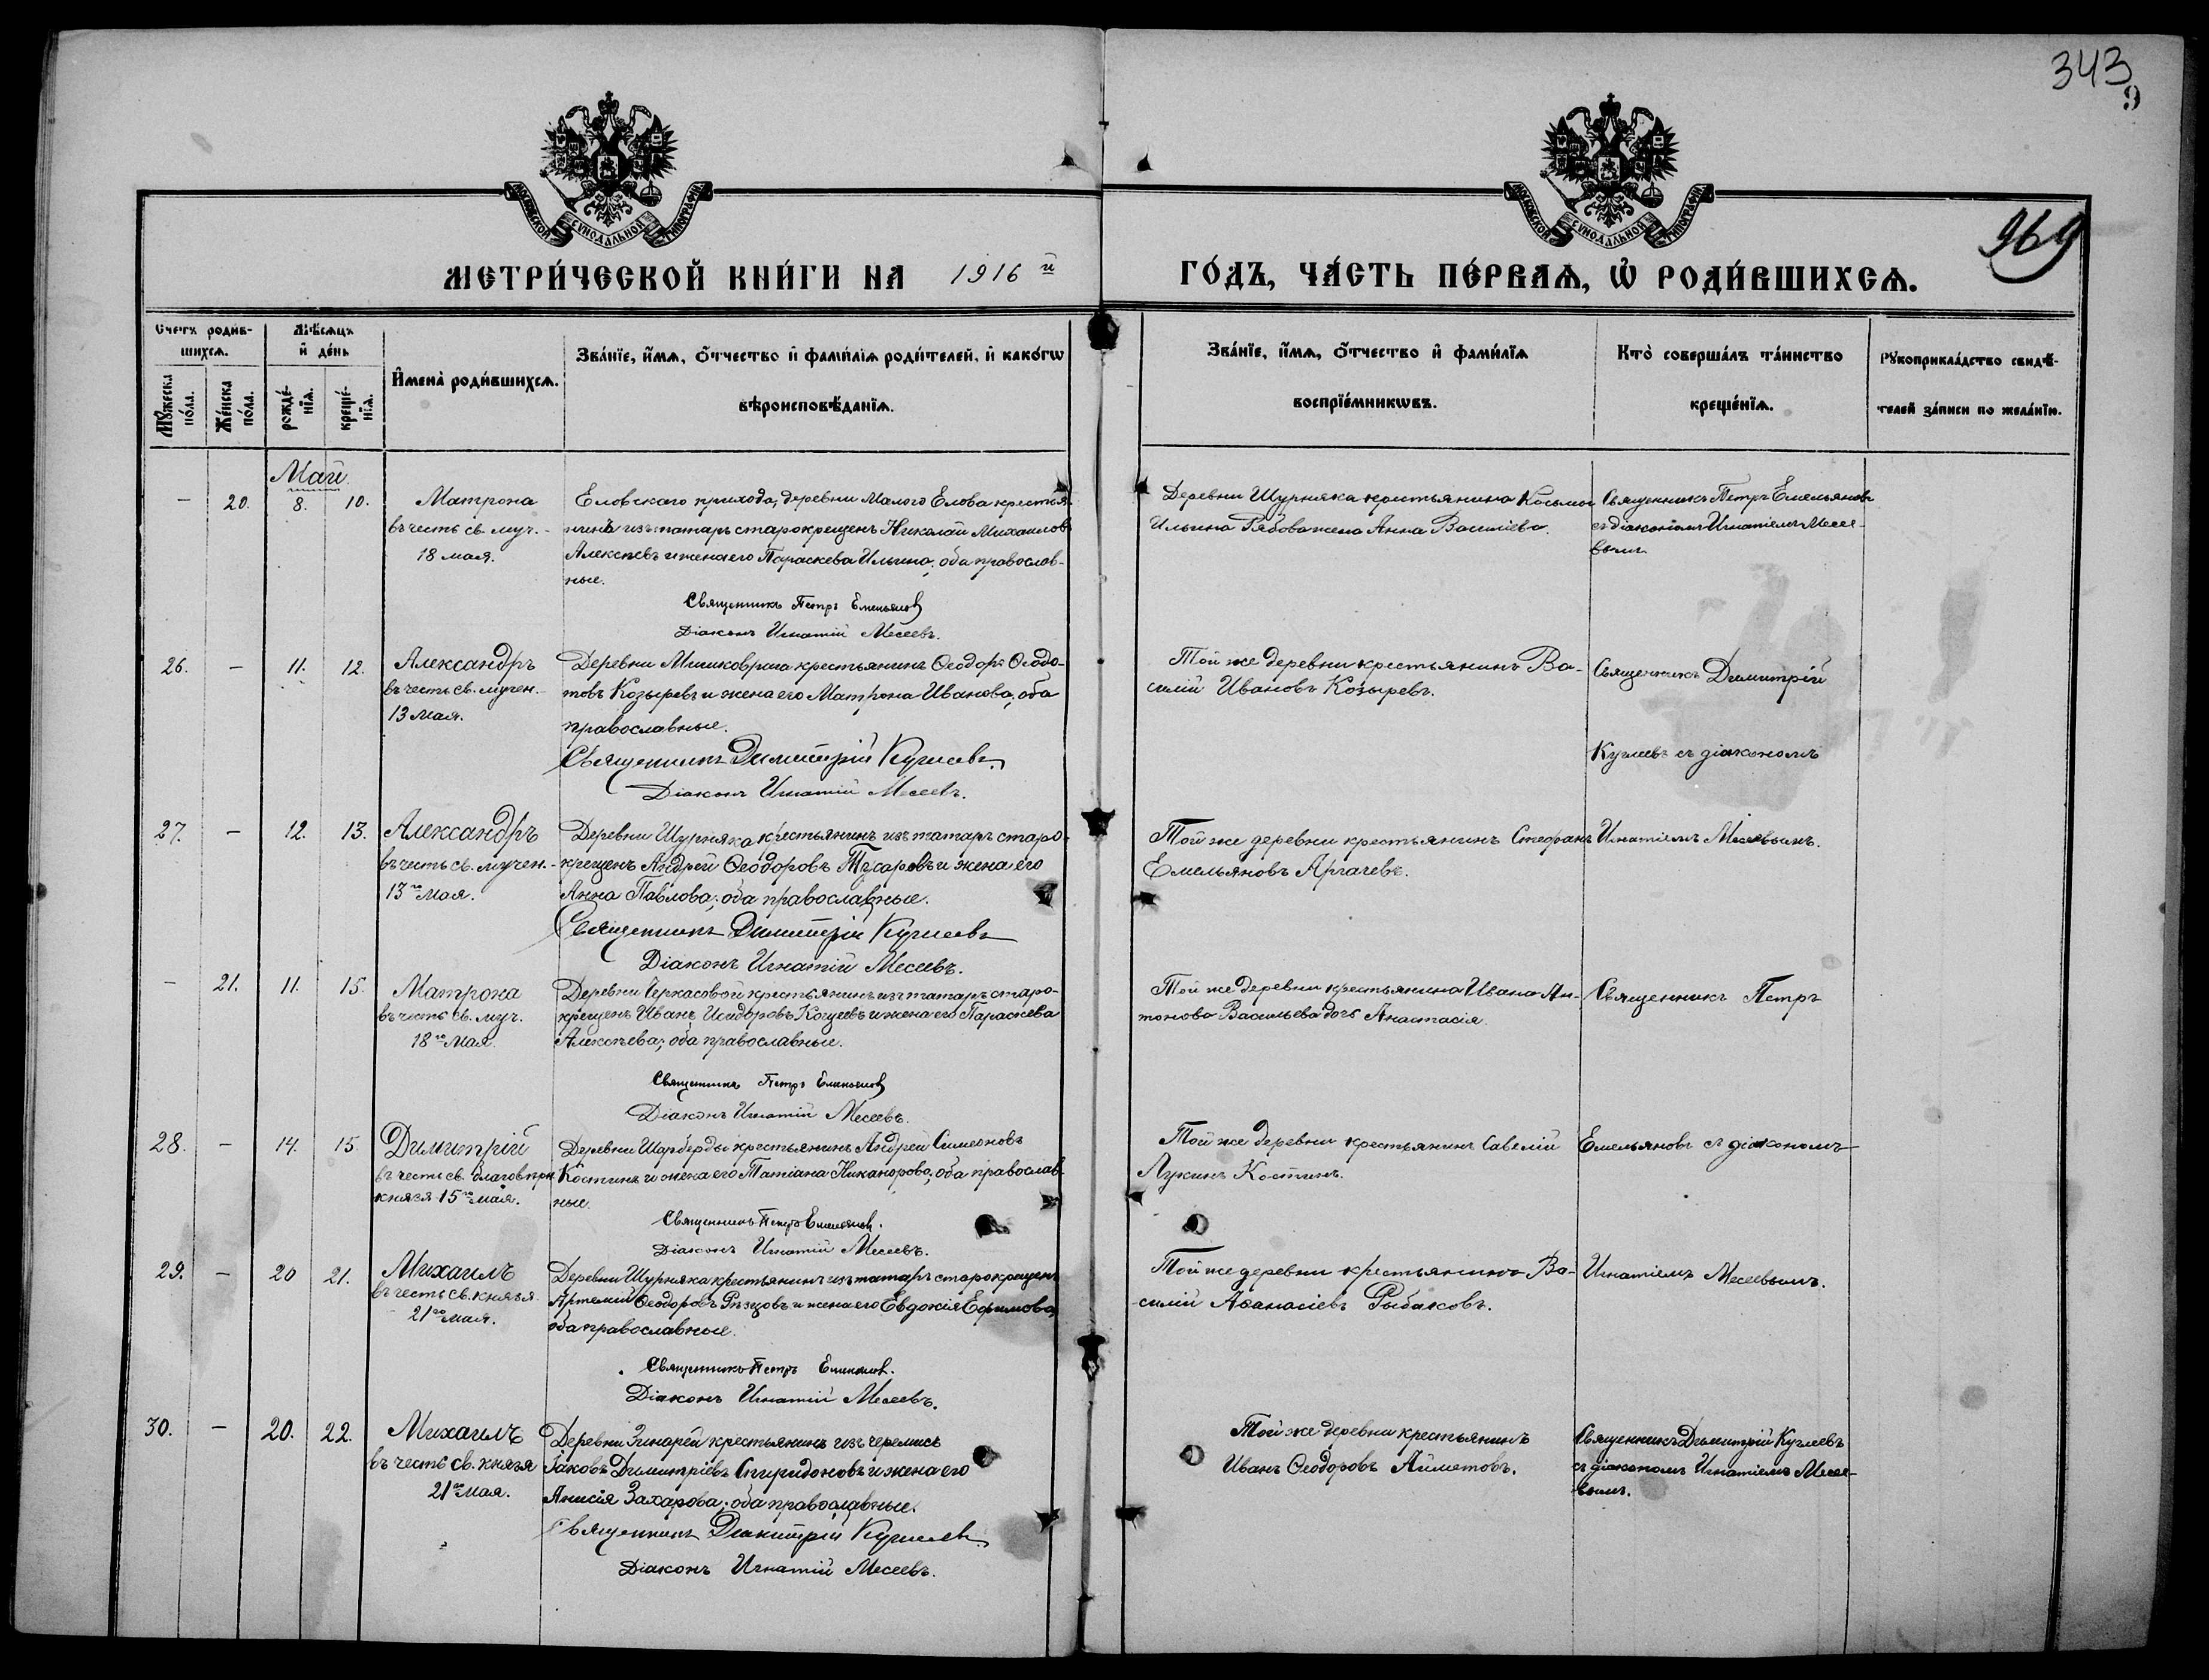 343
9
969
МОСКОВСКОЙ СУНОДАЛЬНОЙ ТИПОГРАФІИ
МОСКОВСКОЙ СУНОДАЛЬНОЙ ТИПОГРАФІИ
МЕТРИ́ЧЕСКОЙ КНИ́ГИ НА 1916й ГО́ДЪ, ЧА́СТЬ ПЕ́РВАѦ, Ѡ҆ РОДИ́ВШИХСѦ.
Счетъ роди́в-
шихсѧ.
Мѣ́сѧцъ
и҆ де́нь
Мꙋ́жеска
по́ла.
Же́нска
по́ла.
рожде́-
нїѧ.
креще́-
нїѧ.
И҆мена̀ роди́вшихсѧ.
Зва́нїе, и҆́мѧ, о҆́тчество и҆ фами́лїѧ роди́телей, и҆ како́гѡ
вѣроисповѣ́данїѧ.
Зва́нїе, и҆́мѧ, о҆́тчество и҆ фами́лїѧ
воспрїе́мникѡвъ.
Кто̀ соверша́лъ та́инство
креще́нїѧ.
Рꙋкоприкла́дство свидѣ́-
телей за́писи по жела́нїю.
Май
— 20. 8. 10.
Матрона
въ честь св. муч.
18 мая.
Еловскаго прихода, деревни Малого Елова крестья-
нинъ изъ татаръ старокрещенъ Николай Михаиловъ
Алексѣевъ и жена его Параскева Ильина; оба православ-
ные.
Священникъ Петръ Емельяновъ
Діаконъ Игнатій Месеевъ.
Деревни Шурняка крестьянина Косьмы
Ильина Рябова жена Анна Василіева.
Священникъ Петръ Емельяновъ
съ діакономъ Игнатіемъ Месее-
вымъ
26. — 11. 12.
Александръ
въ честь св. мучен.
13 мая.
Деревни крестьянинъ Ѳеодоръ Ѳеодо-
товъ Козыревъ и жена его Матрона Иванова; оба
православные.
Священникъ Димитрій Кучеевъ
Діаконъ Игнатій Месеевъ.
Той же деревни крестьянинъ Ва-
силій Ивановъ Козыревъ.
Священникъ Димитрій
съ діакономъ
27. — 12. 13.
Александръ
въ честь св. мучен.
13го мая.
Деревни Шурняка крестьянинъ изъ татаръ старо-
крещенъ Андрей Ѳеодоровъ и жена его
Анна Павлова; оба православные.
Священникъ Димитрій
Діаконъ Игнатій Месеевъ.
Той же деревни крестьянинъ Стефанъ
Емельяновъ Аргачевъ.
Игнатіемъ Месеевымъ.
— 21. 11. 15.
Матрона
въ честь св. муч.
18го мая.
Деревни Черкасовой крестьянинъ изъ татаръ старо-
крещенъ Иванъ Исидоровъ и жена его Параскева
Алексѣева; оба православные.
Священникъ Петръ Емельяновъ
Діаконъ Игнатій Месеевъ.
Той же деревни крестьянина Ивана Ан-
тонова Васильева дочь Анастасія.
Священникъ Петръ
28. — 14. 15
Димитрій
въ честь св. благовѣрн.
князя 15го мая.
Деревни Шарберды крестьянинъ Андрей Симеоновъ
Костинъ и жена его Татіана Никанорова; оба православ-
ные.
Священникъ Петръ Емельяновъ.
Діаконъ Игнатій Месеевъ.
Той же деревни крестьянинъ Савелій
Лукинъ Костинъ.
Емельяновъ съ діакономъ
29. — 20 21.
Михаилъ
въ честь св. князя
21го мая.
Деревни Шурняка крестьянинъ изъ татаръ старокрещенъ
Артемій Ѳеодоровъ Рѣзцовъ и жена его Евдокія Ефимова,
оба православные.
Священникъ Петръ Емельяновъ.
Діаконъ Игнатій Месеевъ.
Той же деревни крестьянинъ Ва-
силій Аѳанасіевъ Рыбаковъ.
Игнатіемъ Месеевымъ.
30. — 20. 22.
Михаилъ
въ честь св. князя
21го мая.
Деревни Зинарей крестьянинъ изъ черемисъ
Іаковъ Димитріевъ Спиридоновъ и жена его
Анисія Захарова; оба православные.
Священникъ Димитрій
Діаконъ Игнатій Месеевъ.
Той же деревни крестьянинъ
Иванъ Ѳеодоровъ Айметовъ.
Священникъ Димитрій
съ діакономъ Игнатіемъ Месее-
вымъ.